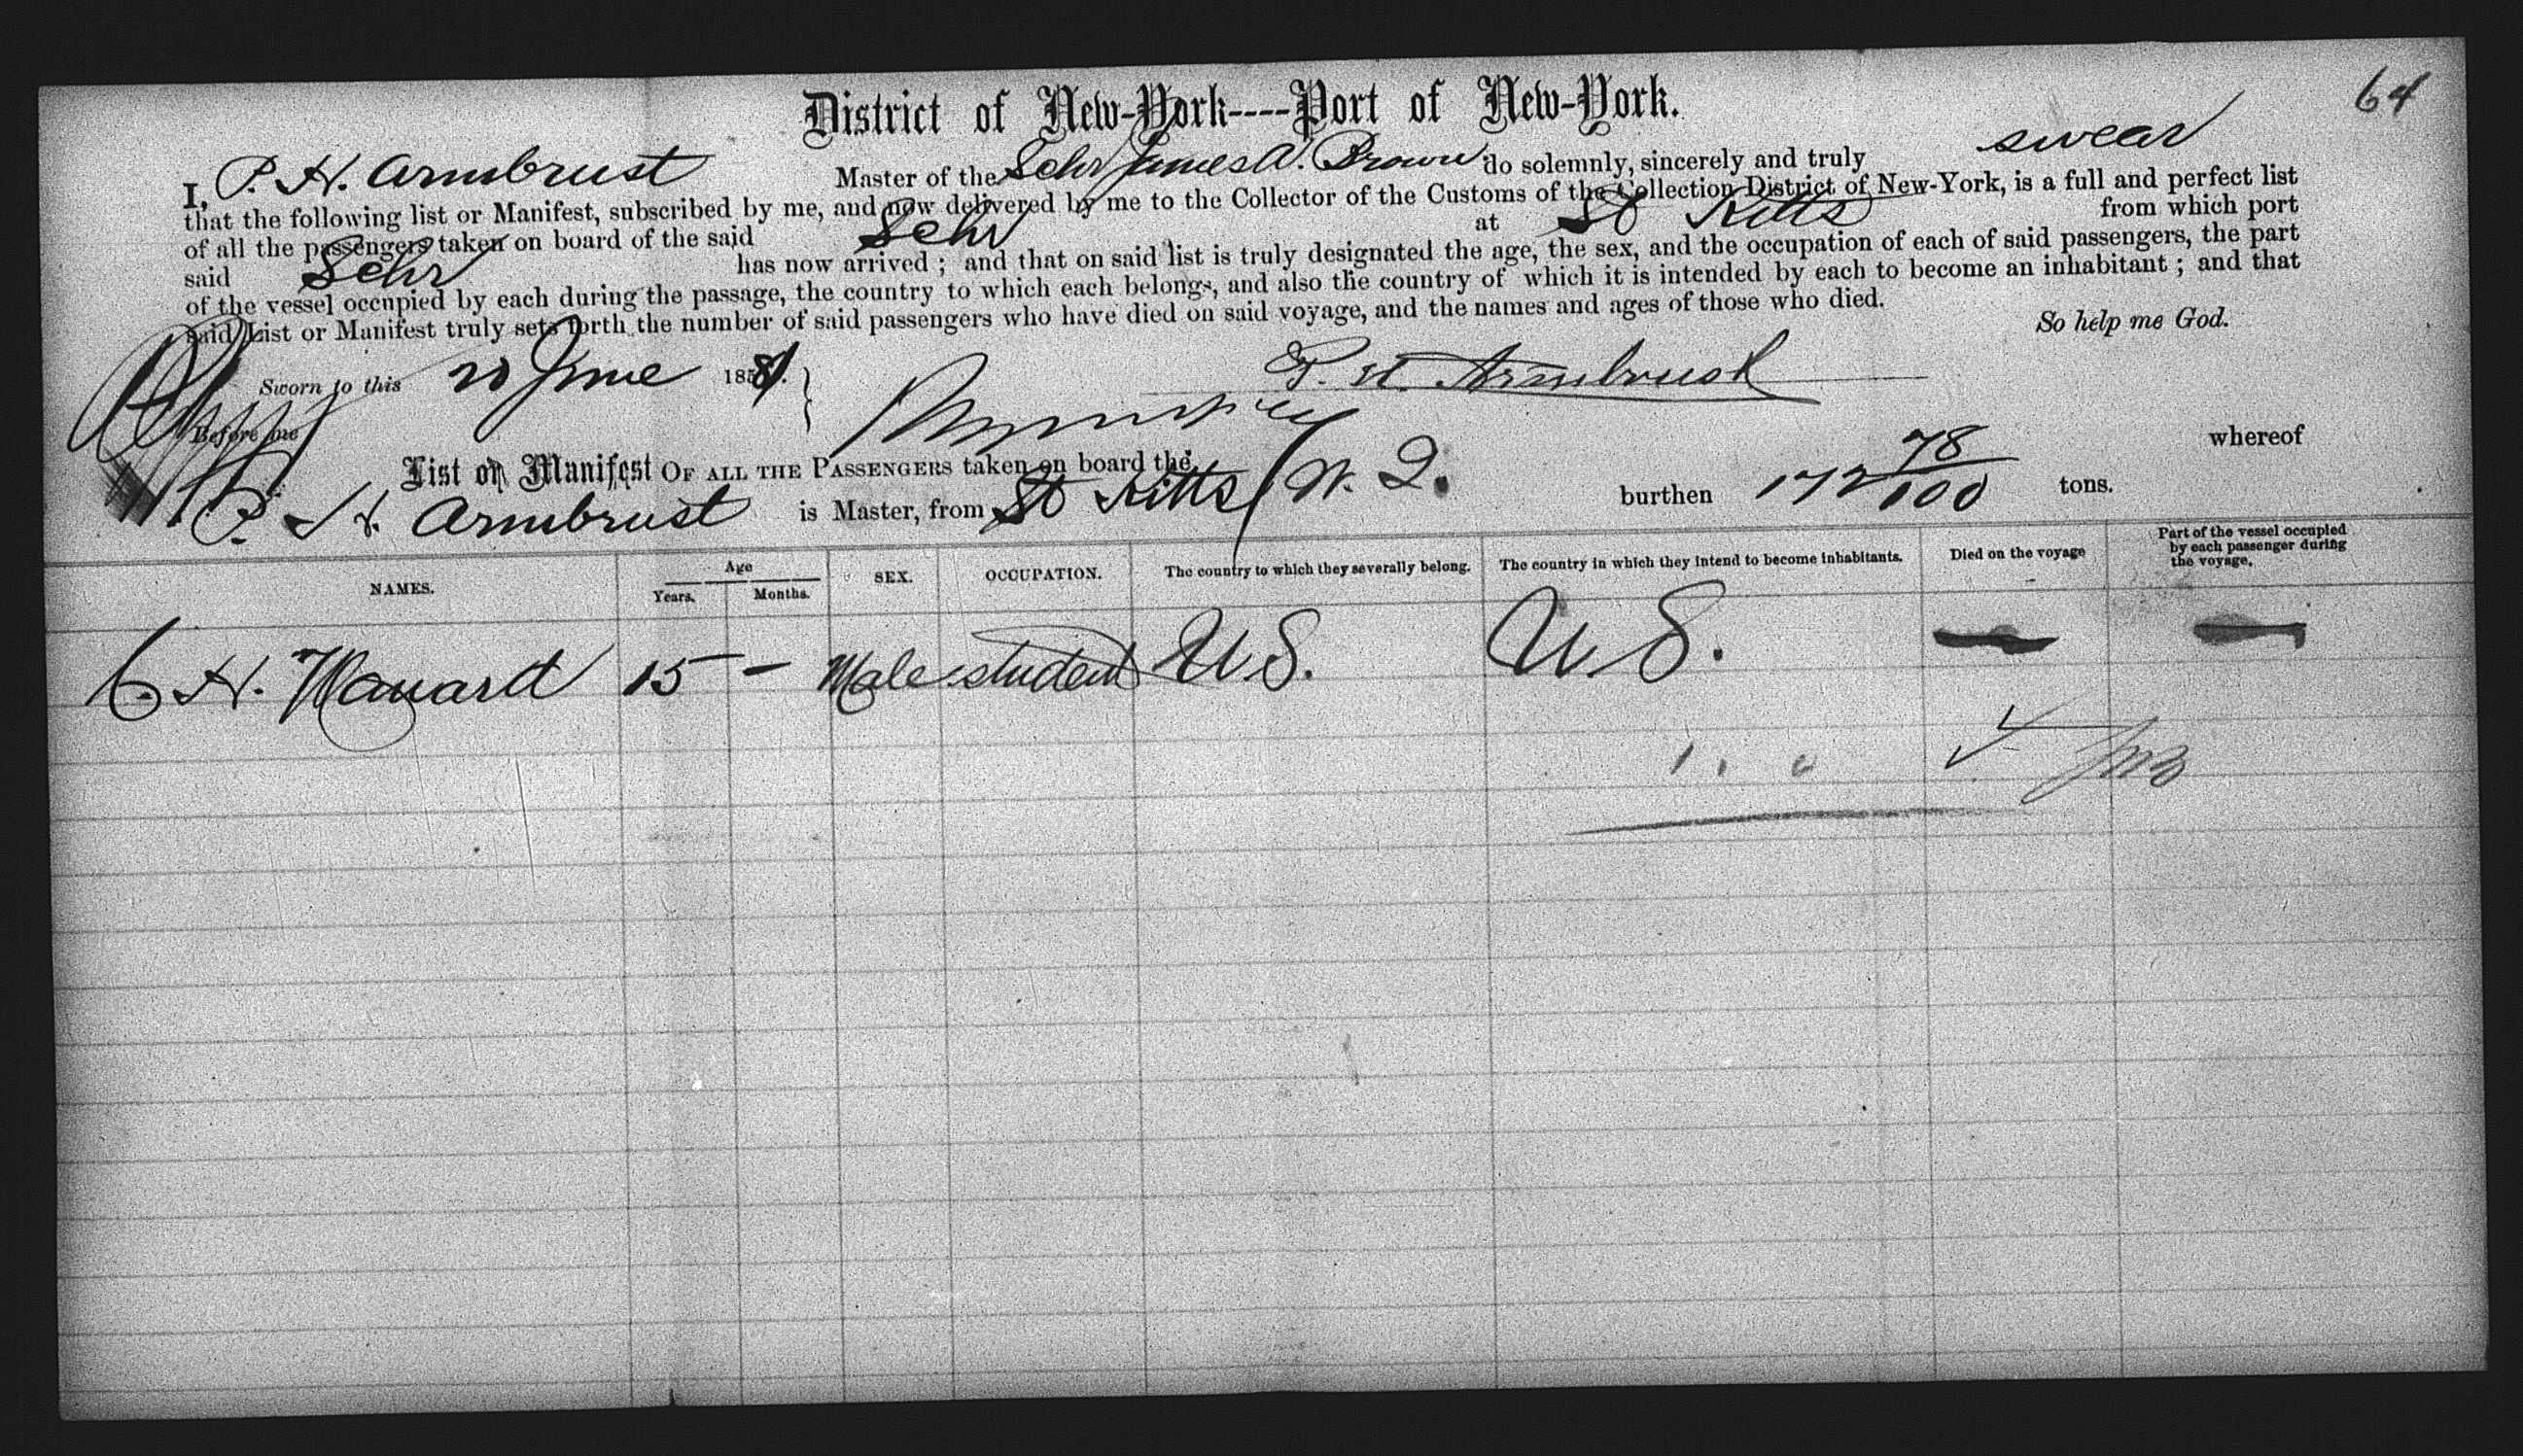 64
District of New-York----Port of New-York.
I, P. H. Armbrust Master of the Schr James A. Brown do solemnly, sincerely and truly swear
that the following list or Manifest, subscribed by me, and now delivered by me to the Collector of the Customs of the Collection District of New-York, is a full and perfect list
of all the passengers taken on board of the said Schr at St Kitts from which port
said Schr has now arrived ; and that on said list is truly designated the age, the sex, and the occupation of each of said passengers, the part
of the vessel occupied by each during the passage, the country to which each belongs, and also the country of which it is intended by each to become an inhabitant ; and that
said List or Manifest truly sets forth the number of said passengers who have died on said voyage, and the names and ages of those who died.
So help me God.
Sworn to this 20 June 188 P. H. Armbrust
Before me
List or Manifest OF ALL THE PASSENGERS taken on board the whereof
P. H. Armbrust is Master, from St Kitts W. I. burthen 172 78/100 tons.
NAMES. Age Years. Months. SEX. OCCUPATION. The country to which they severally belong. The country in which they intend to become inhabitants. Died on the voyage Part of the vessel occupied by each passenger during the voyage.
C. H. 15 - Male student U S. U S. — —